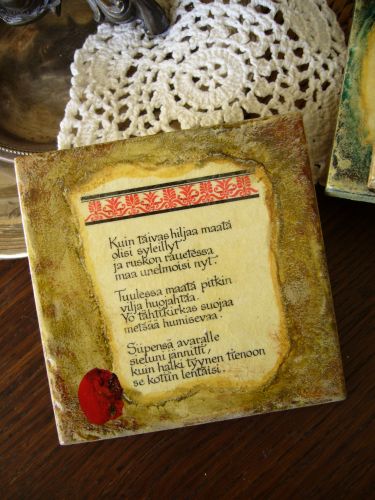 Kuin taivas hiljaa maata
olisi syleillyt
ja ruskon rauetessa
maa unelmoisi nyt.
Tuulessa maata pitkin
vilja huojahtaa.
Yö tähtikirkas suojaa
metsää humisevaa.
Siipensä avaralle
sieluni jännitti,
kuin halki tyynen tienoon
se kotiin lentäisi.